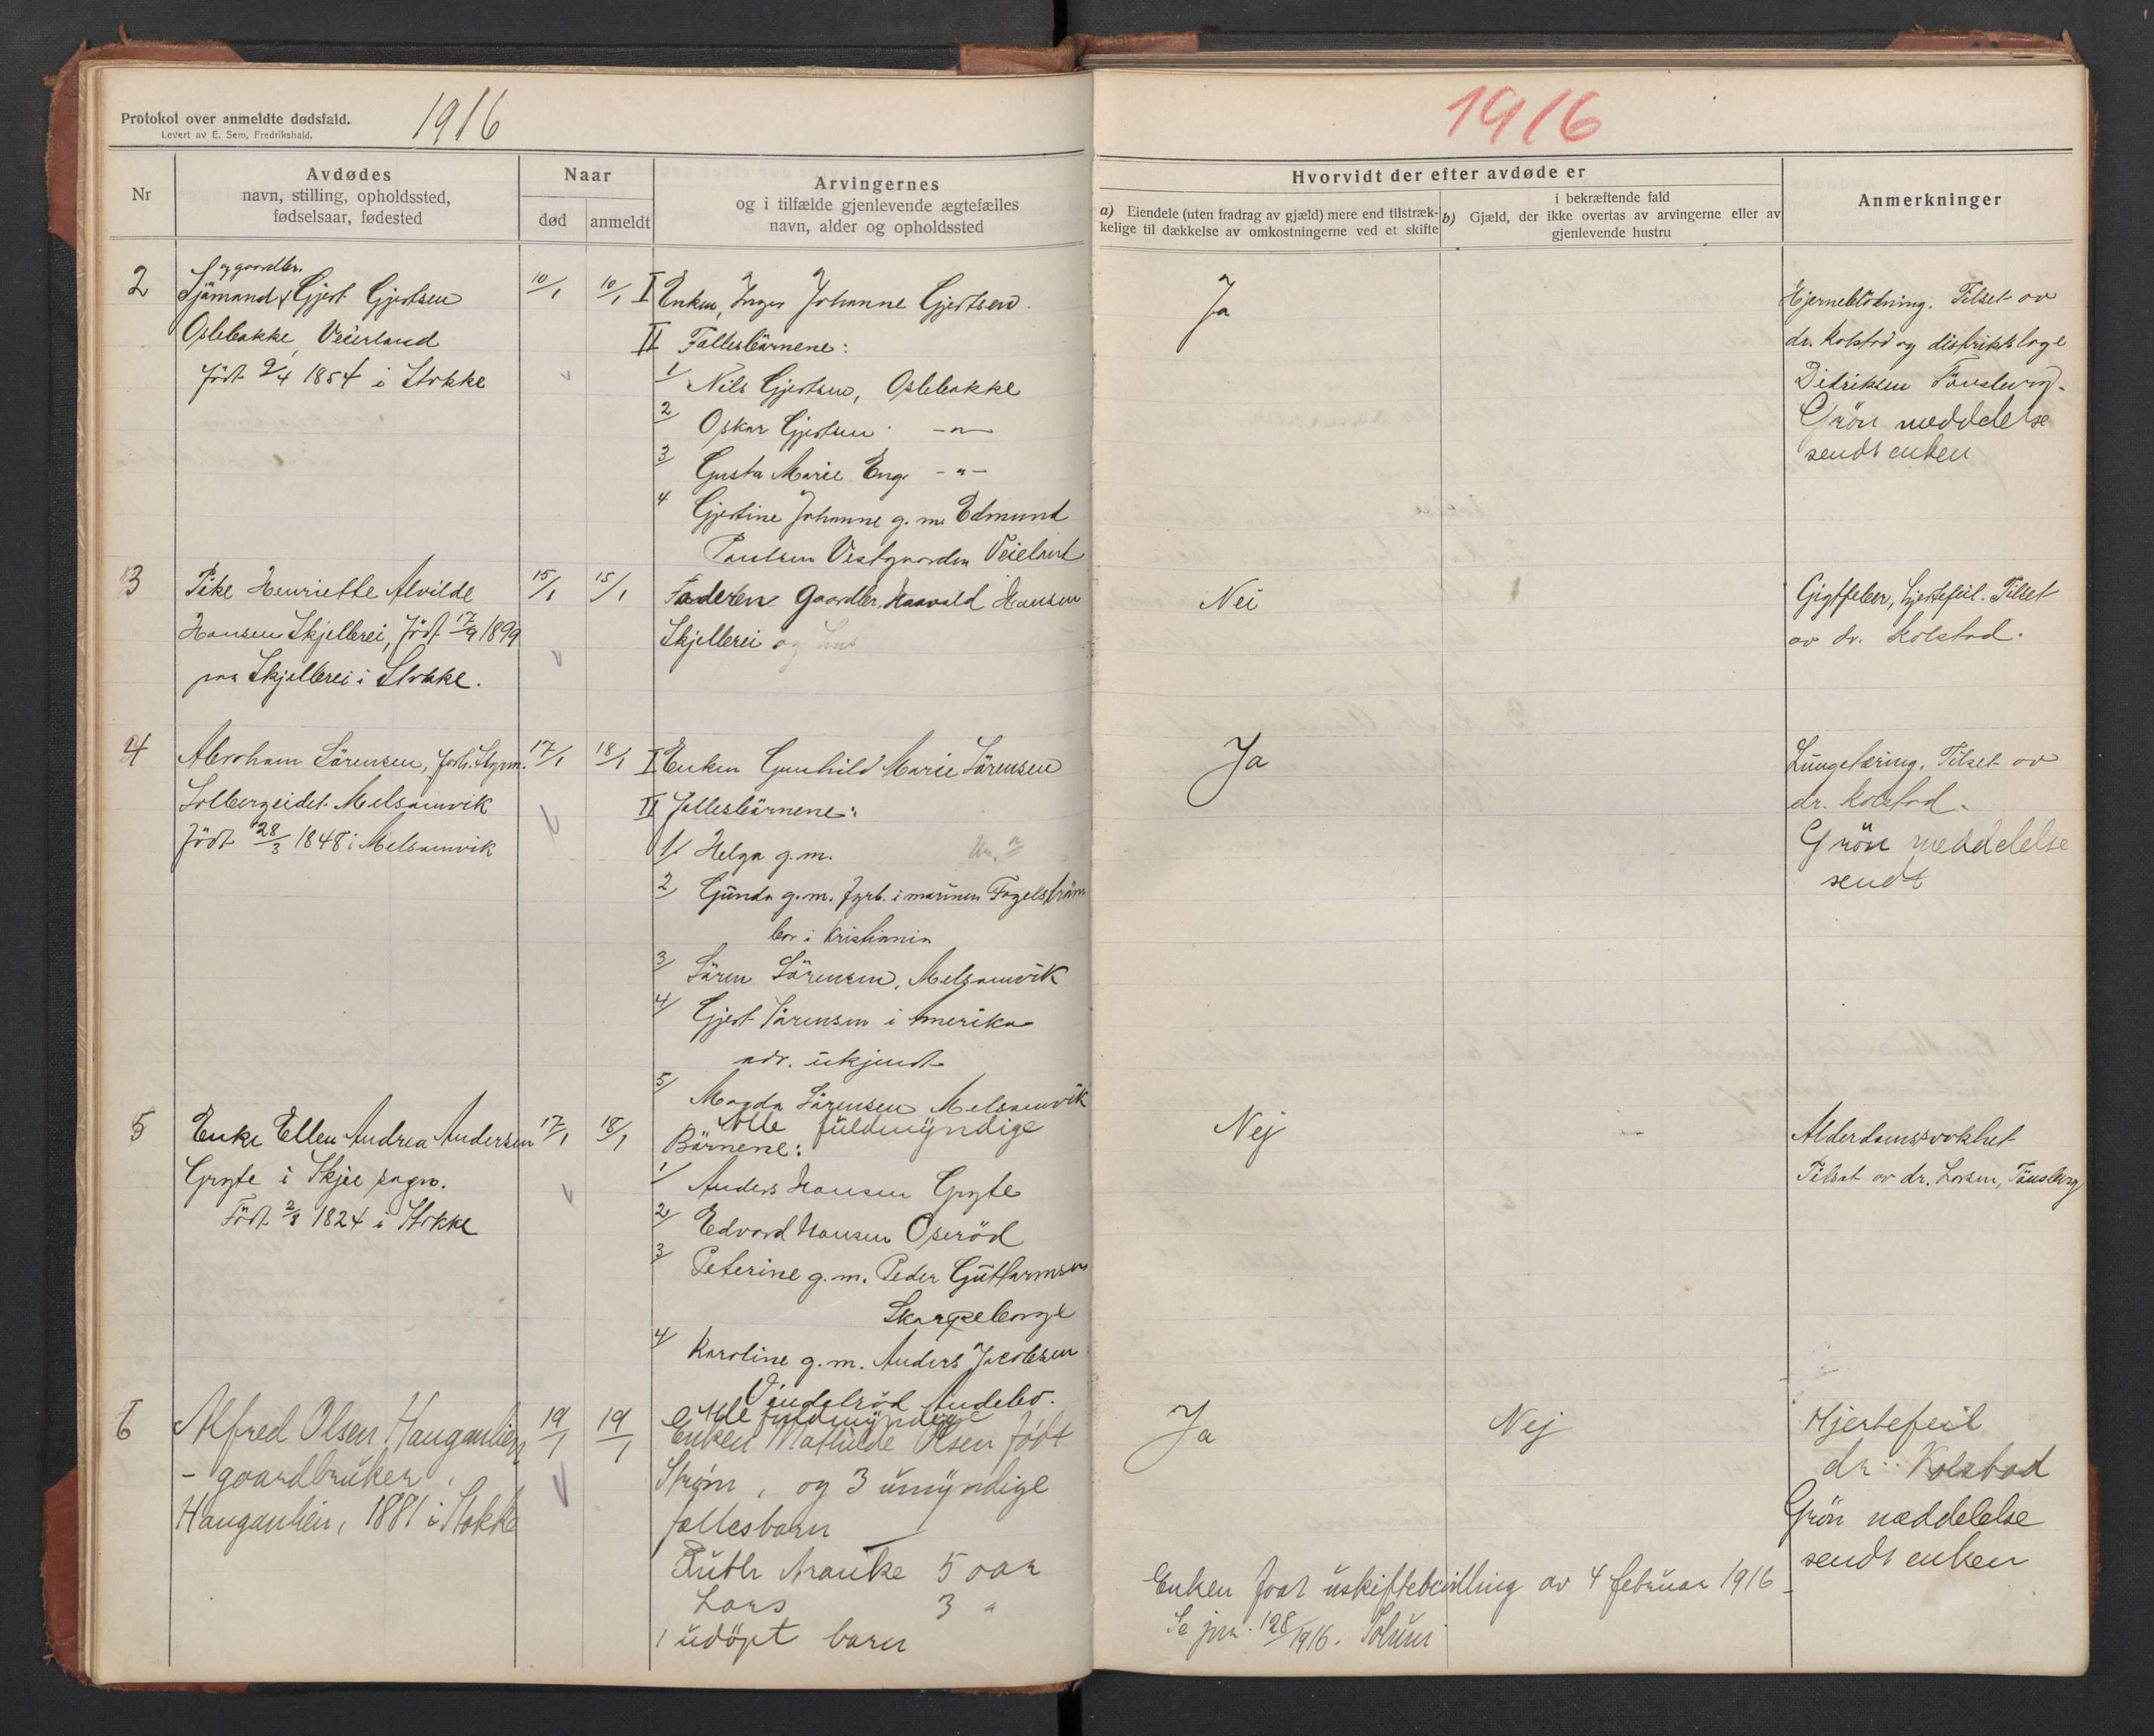 Protokol over anmeldte dødsfald.
Levert av E. Sem, Fredrikshald.
1916
1916
Nr
Avdødes
navn, stilling, opholdssted,
fødselsaar, fødested
Naar
død
anmeldt
Arvingernes
og i tilfælde gjenlevende ægtefælles
navn, alder og opholdssted
Hvorvidt der efter avdøde er
a) Eiendele (uten fradrag av gjæld) mere end tilstræk-
kelige til dækkelse av omkostningerne ved et skifte
i bekræftende fald
b) Gjæld, der ikke overtas av arvingerne eller av
gjenlevende hustru
Anmerkninger
2
og gaardbr.
Sjömand Gjert Gjertsen
Oslebakke, Veierland
Født 9/4 1854 i Stokke
10/1
10/1
I Enken, Inger Johanne Gjertsen.
II Fællesbörnene:
1/ Nils Gjertsen, Oslebakke
2 Oskar Gjertsen -"-
3 Gusta Marie Eng -"-
4 Gjertine Johanne g. m. Edmund
Paulsen Vestgaarden Veieland
Ja
Hjerneblödning. Tilset av
dr. Kolstad og distriktslæge
Didriksen Tönsberg.
Grön meddelelse
sendt enken
3
Pike Henriette Alvilde
Hansen Skjellerei, født 17/9 1899
paa Skjellerei i Stokke.
15/1
15/1
Faderen Gaardbr. Haavald Hansen
Skjellerei og hus
Nei
Gigtfeber, hjertefeil. Tilset
av dr. Kolstad.
4
Abraham Sörensen, forh. Styrm.
Solbergeidet Melsomvik
Född 28/3 1848 i Melsomvik
17/1
18/1
I Enken Gunhild Marie Sörensen
II Fællesbörnene:
1/ Helga g. m.
2 Gunda g. m. fyrb. i marinen Fagelström
bor i Kristiania
3/ Sören Sörensen, Melsomvik
4/ Gjert Sörensen i Amerika
adr. ukjendt
5/ Magda Sörensen Melsomvik
Alle fuldmyndige
Ja
Lungetæring. Tilset av
dr. Kolstad.
Grön meddelelse
sendt
5
Enke Ellen Andrea Andersen
Gryte i Skjee sogn.
Född 2/8 1824 i Stokke
17/1
18/1
Börnene:
1/ Anders Hansen Gryte
2/ Edvard Hansen Oseröd
3/ Peterine g. m. Peder Guttormsen
Skarpeborge
4/ Karoline g. m. Anders Jacobsen
Vindalröd Andebo.
Alle fuldmyndige
Nej
Alderdomssvakhet
Tilset av dr. Larsen, Tönsberg
6
Alfred Olsen Hauganlien
- gaardbruker,
Hauganlien, 1881 i Stokke
19/1
19/1
Enken Mathilde Olsen födt
Strøm, og 3 umyndige
fællesbarn
Ruth Arauke 5 aar
Lars 3 "
1 udöpt barn
Ja
Nej
Hjertefeil
dr. Kolstad
Grön meddelelse
sendt enken
Enken faat uskiftebevilling av 4 februar 1916
Se jnr. 128/1916.